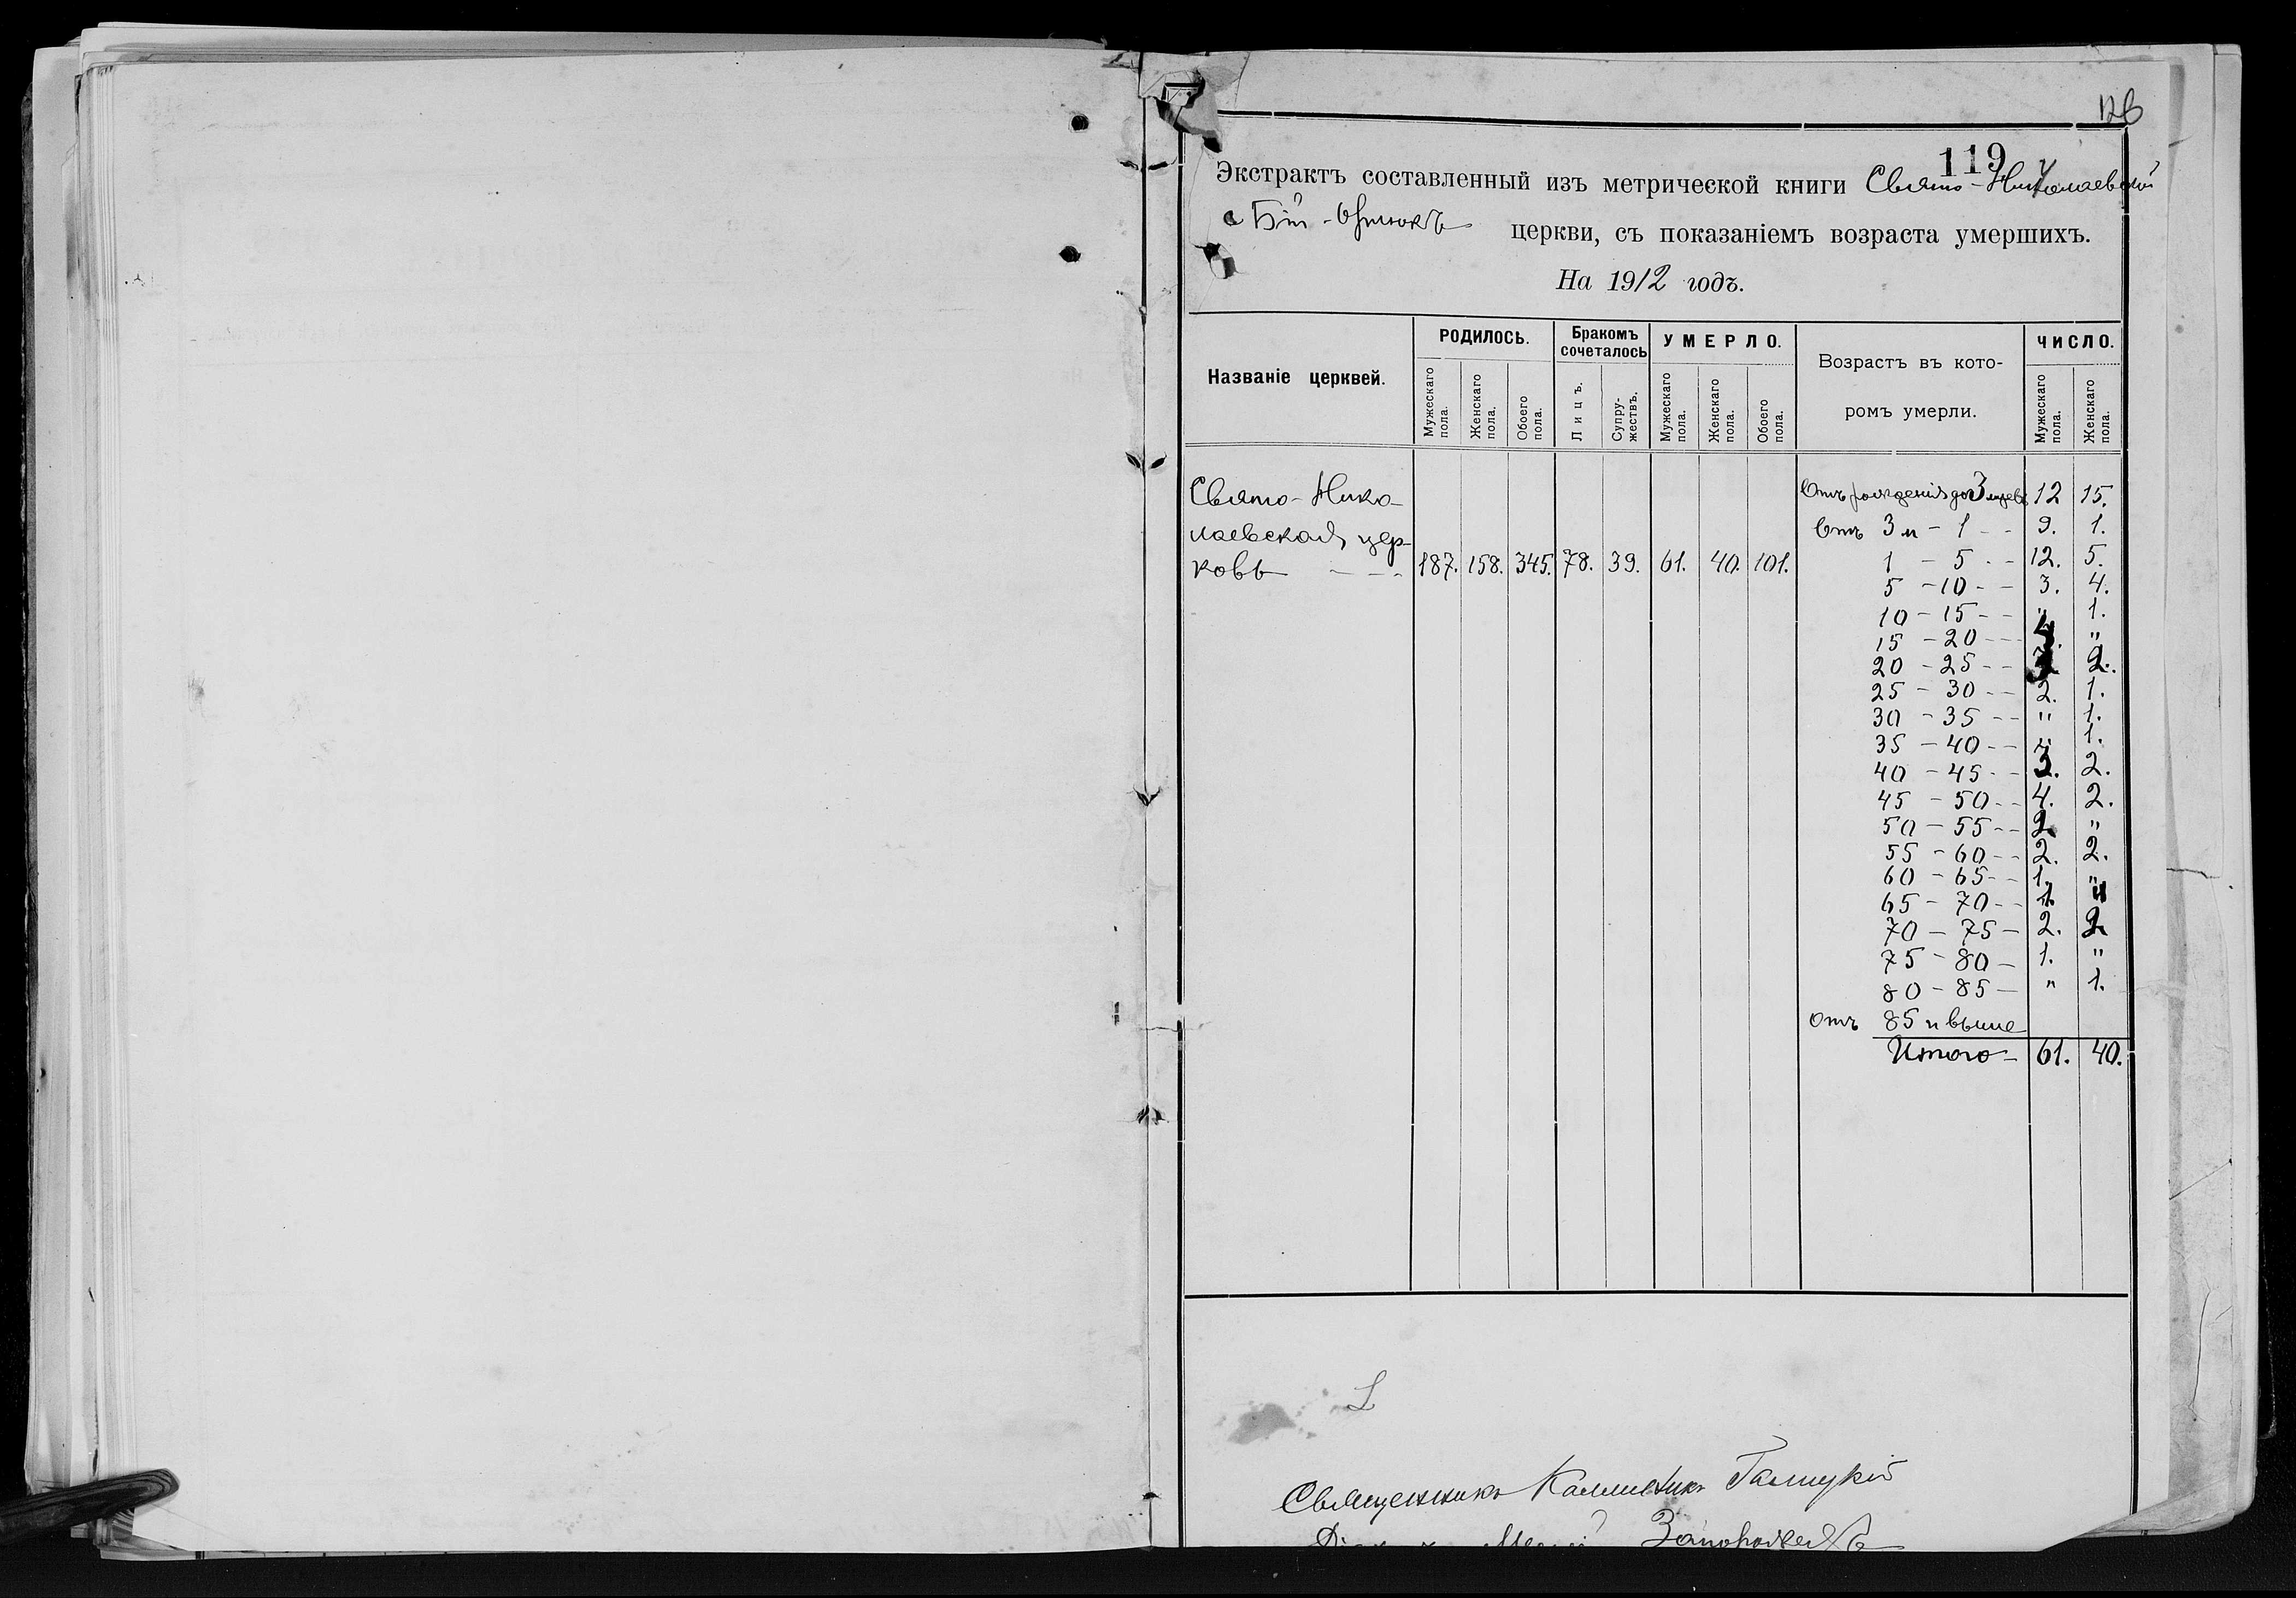 128
119
Экстрактъ составленный изъ метрической книги Свято-Николаевской
с Бій-Орлюкъ церкви, съ показаніемъ возраста умершихъ.
На 1912 годъ.
Названіе церквей.
РОДИЛОСЬ.
Мужескаго пола.
Женскаго пола.
Обоего пола.
Бракомъ сочеталось
Лицъ.
Супружествъ.
УМЕРЛО.
Мужескаго пола.
Женскаго пола.
Обоего пола.
Возрастъ въ кото-
ромъ умерли.
ЧИСЛО.
Мужескаго пола.
Женскаго пола.
Свято-Нико-
лаевская цер-
ковь - - - 187. 158. 345. 78. 39. 61. 40. 101.
Отъ рожденія до 3 мцевъ 12 15.
Отъ 3 м - 1 - - 9. 1.
1 - 5 - - 12. 5.
5 - 10 - - 3. 4.
10 - 15 - - " 1.
15 - 20 - - "
20 - 25 - - 2.
25 - 30 - - 2. 1.
30 - 35 - - " 1.
35 - 40 - - 1.
40 - 45 - - 3. 2.
45 - 50 - - 4. 2.
50 - 55 - - 2 "
55 - 60 - - 2. 2.
60 - 65 - - 1. "
65 - 70 - - 1.
70 - 75 - 2. 2
75 - 80 - 1. "
80 - 85 - " 1.
отъ 85 и выше
Итого - 61. 40.
Священникъ Каллиникъ Галицкій